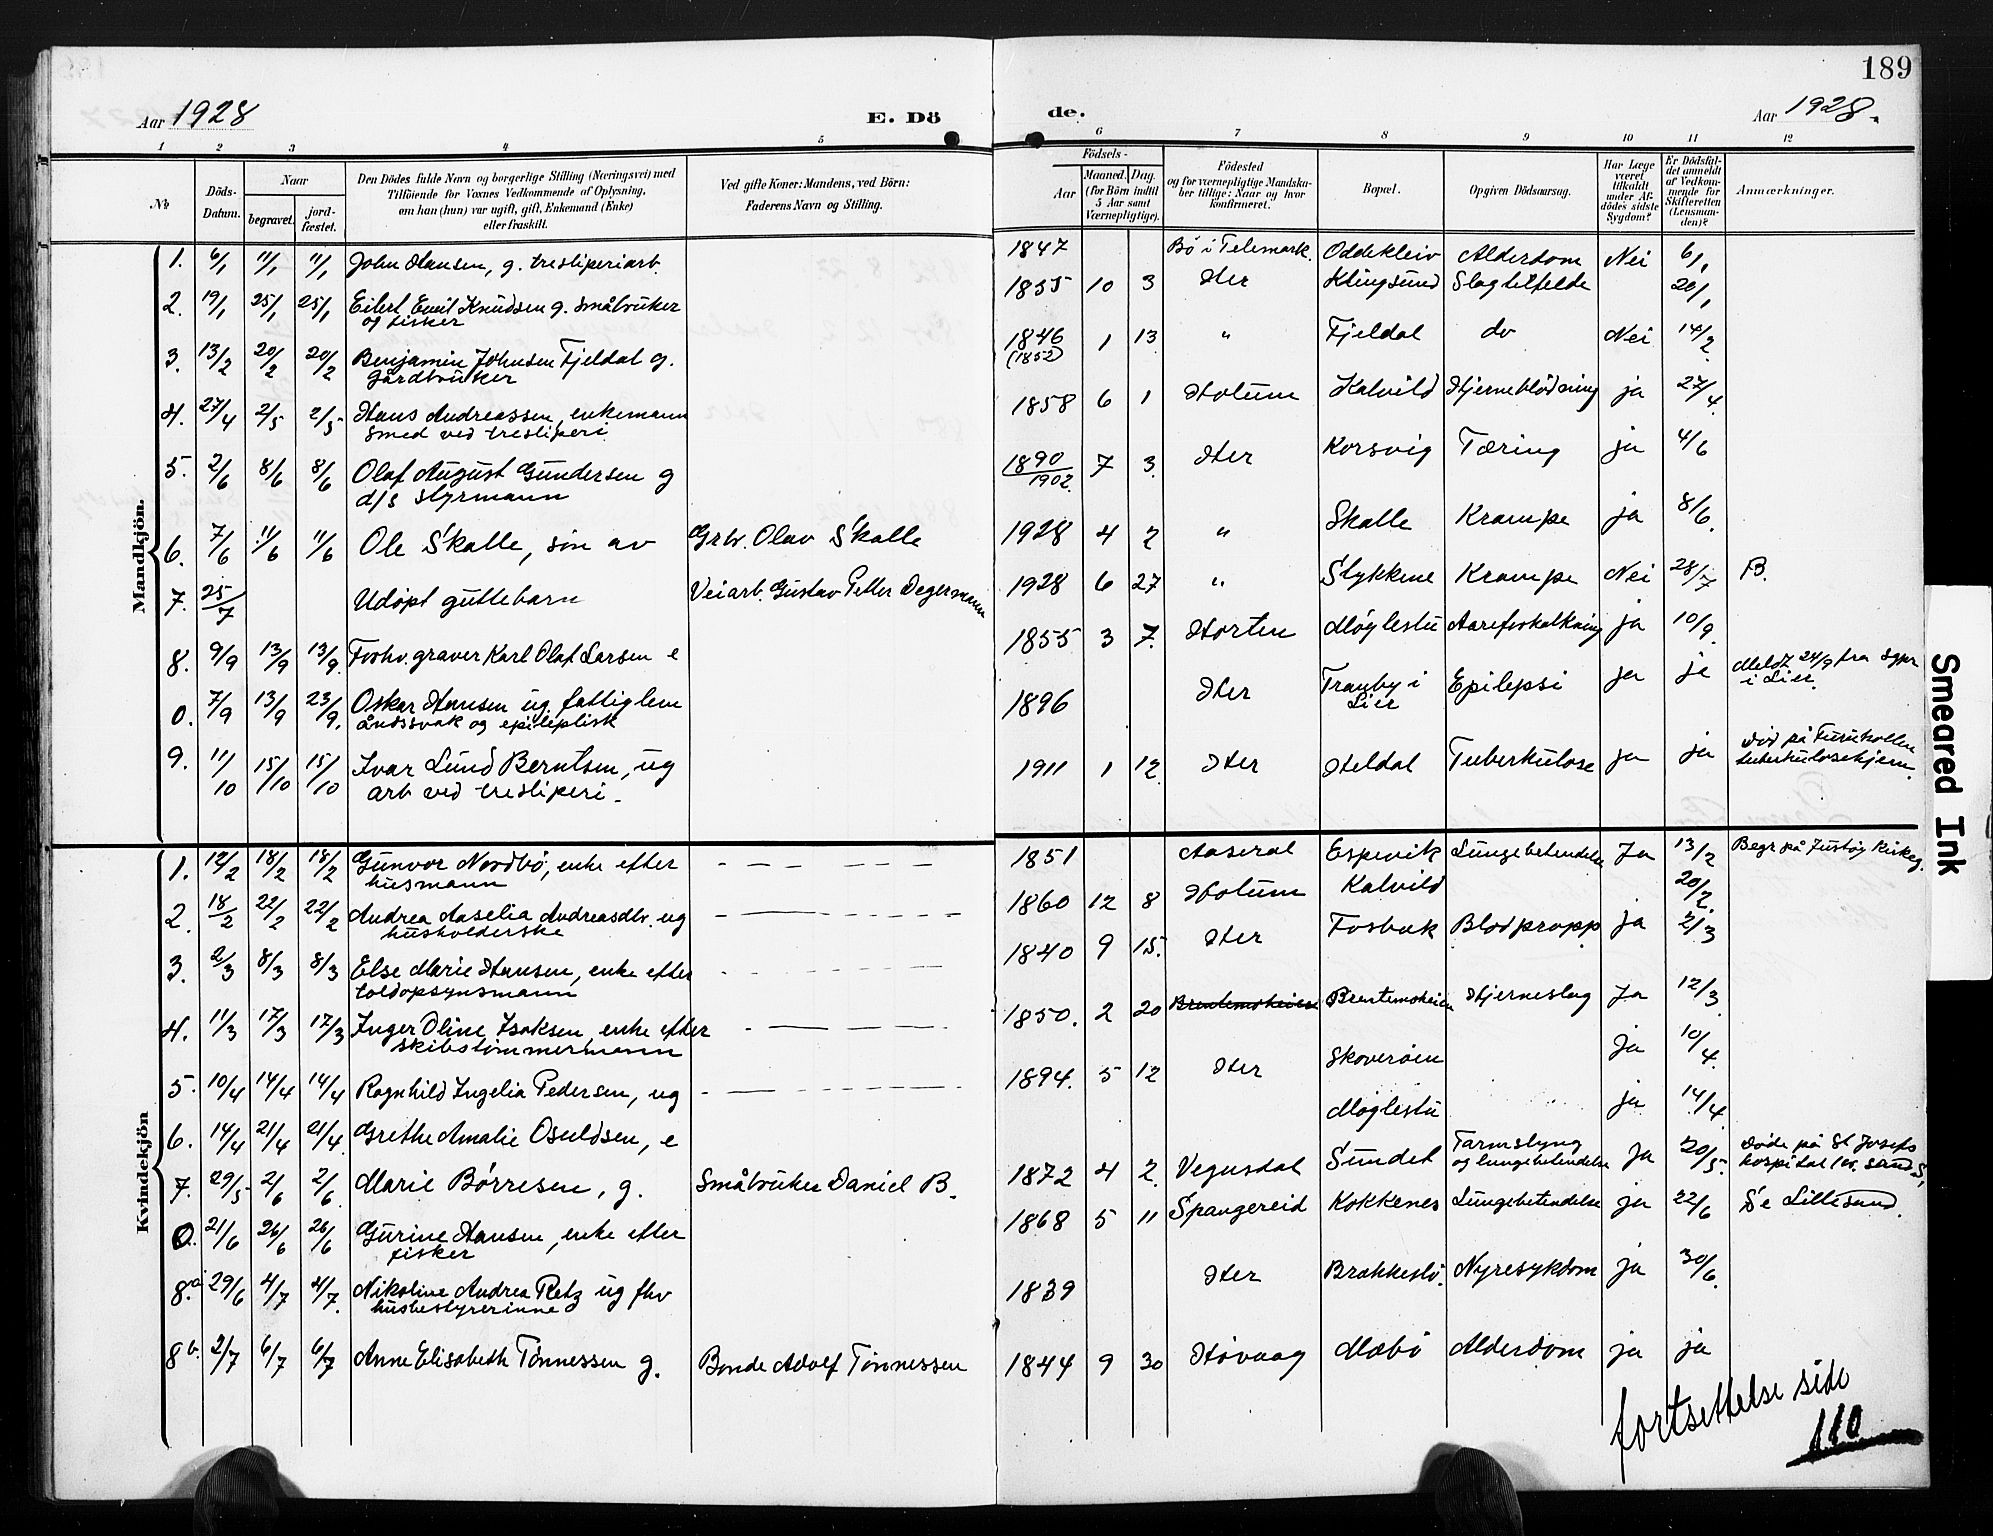 189
Aar 1928
E. Dö
de.
Aar 1928.
1 2 3 4 5 6 7 8 9 10 11 12
No
Döds-Datum.
Naar
begravet.
jord-fæstet.
Den Dödes fulde Navn og borgerlige Stilling (Næringsvei) med
Tilföiende for Voxnes Vedkommende af Oplysning,
om han (hun) var ugift, gift, Enkemand (Enke)
eller fraskilt.
Ved gifte Koner: Mandens, ved Börn:
Faderens Navn og Stilling.
Födsels-
Aar
Maaned. Dag.
(for Börn indtil
5 Aar samt
Værnepligtige).
Födested
og for værnepligtige Mandska-
ber tillige: Naar og hvor
konfirmeret.
Bopæl.
Opgiven Dödsaarsag.
Har Læge
været
tilkaldt
under Af-
dödes sidste
Sygdom?
Er Dödsfal-
det anmeldt
af Vedkom-
mende for
Skifteretten
(Lensman-
den)?
Anmærkninger.
Mandkjön.
1. 6/1 11/1 11/1 John Hansen, g. tresliperiarb. 1847 Bö i Telemark. Oddekleiv Alderdom Nei 6/1
2. 19/1 25/1 25/1 Eilert Emil Knudsen g. småbruker 1855 10 3 Her Klingsund Slagtilfelde 20/1
og fisker
3. 13/2 20/2 20/2 Benjamin Johnsen Fjeldal g. 1846 1 13 " Fjeldal do Nei 14/2
gårdbruker (1852)
4. 27/4 2/5 2/5 Hans Andreassen, enkemann 1858 6 1 Holum Kalvild Hjerneblödning ja 27/4
smed ved tresliperi
5. 2/6 8/6 8/6 Olaf August Gundersen g 1890/1902 7 3 Her Korsvig Tæring ja 4/6
d/s styrmann
6. 7/6 11/6 11/6 Ole Skalle, sön av Grbr. Olav Skalle 1928 4 2 " Skalle Krampe ja 8/6.
7. 25/7 Udöpt guttebarn Veiarb. Gustav Petter Degermann 1928 6 27 " Stykkene Krampe Nei 28/7 B.
8. 9/9 13/9 13/9 Forhv. graver Karl Olaf Larsen e 1855 3 7. Horten Möglestu Aareforkalkning ja 10/9.
0. 7/9 13/9 23/9. Oskar Hansen ug. fattiglem 1896 Her Tranby i Lier Epilepsi ja ja Meldt 24/9 fra Spr i Lier.
åndssvak og epileptisk
9. 11/10 15/10 15/10 Ivar Lund Berntsen, ug 1911 1 12 Her Heldal Tuberkulose ja ja Död på Furukollen tuberkulosehjem.
arb ved tresliperi.
Kvindekjön
1. 12/2 18/2 18/2 Gunvor Nordbö, enke efter 1851 Aaseral Espevik Lungebetendelse Ja 13/2 Begr på Justöy Kirkeg.
husmann
2. 18/2 22/2 22/2 Andrea Aaselia Andreasdtr. ug 1860 12 8 Holum Kalvild 20/2.
husholderske
3. 2/3 8/3 8/3 Else Marie Hansen, enke efter 1840 9 15. Her Fosbæk Blodpropp ja 2/3
toldopsynsmann
4. 11/3 17/3 17/3 Inger Oline Isaksen, enke efter 1850. 2 20 Brentemoheien Brentemoheien Hjerneslag Ja 12/3
skibstömmermann
5. 10/4 14/4 14/4 Ragnhild Ingelia Pedersen, ug 1894. 5 12 Her Skoveröen ja 10/4.
6. 14/4 21/4 21/4 Grethe Amalie Osuldsen, e Möglestu ja 14/4
7. 29/5 2/6 2/6 Marie Börresen, g. Småbruker Daniel B. 1872 4 2. Vegusdal Sundet Tarmslyng og lungebetendelse Ja 30/5. Döde på St Josefs hospital kr. sand S,
0. 21/6 26/6 26/6 Gurine Hansen, enke efter 1868 5 11 Spangereid Kokkenes Lungebetendelse ja 22/6 Se Lillesand.
fisker
8.a 29/6 4/7 4/7. Nikoline Andrea Retz ug fhv 1839 Her Brækkestö. Nyresykdom ja 30/6.
husbestyrerinne
8b. 2/7 6/7 6/7 Anne Elisabeth Tönnessen g. Bonde Adolf Tönnessen 1844 9 30 Hövaag Mæbö Alderdom ja ja
fortsettelse side
110
Smeared Ink